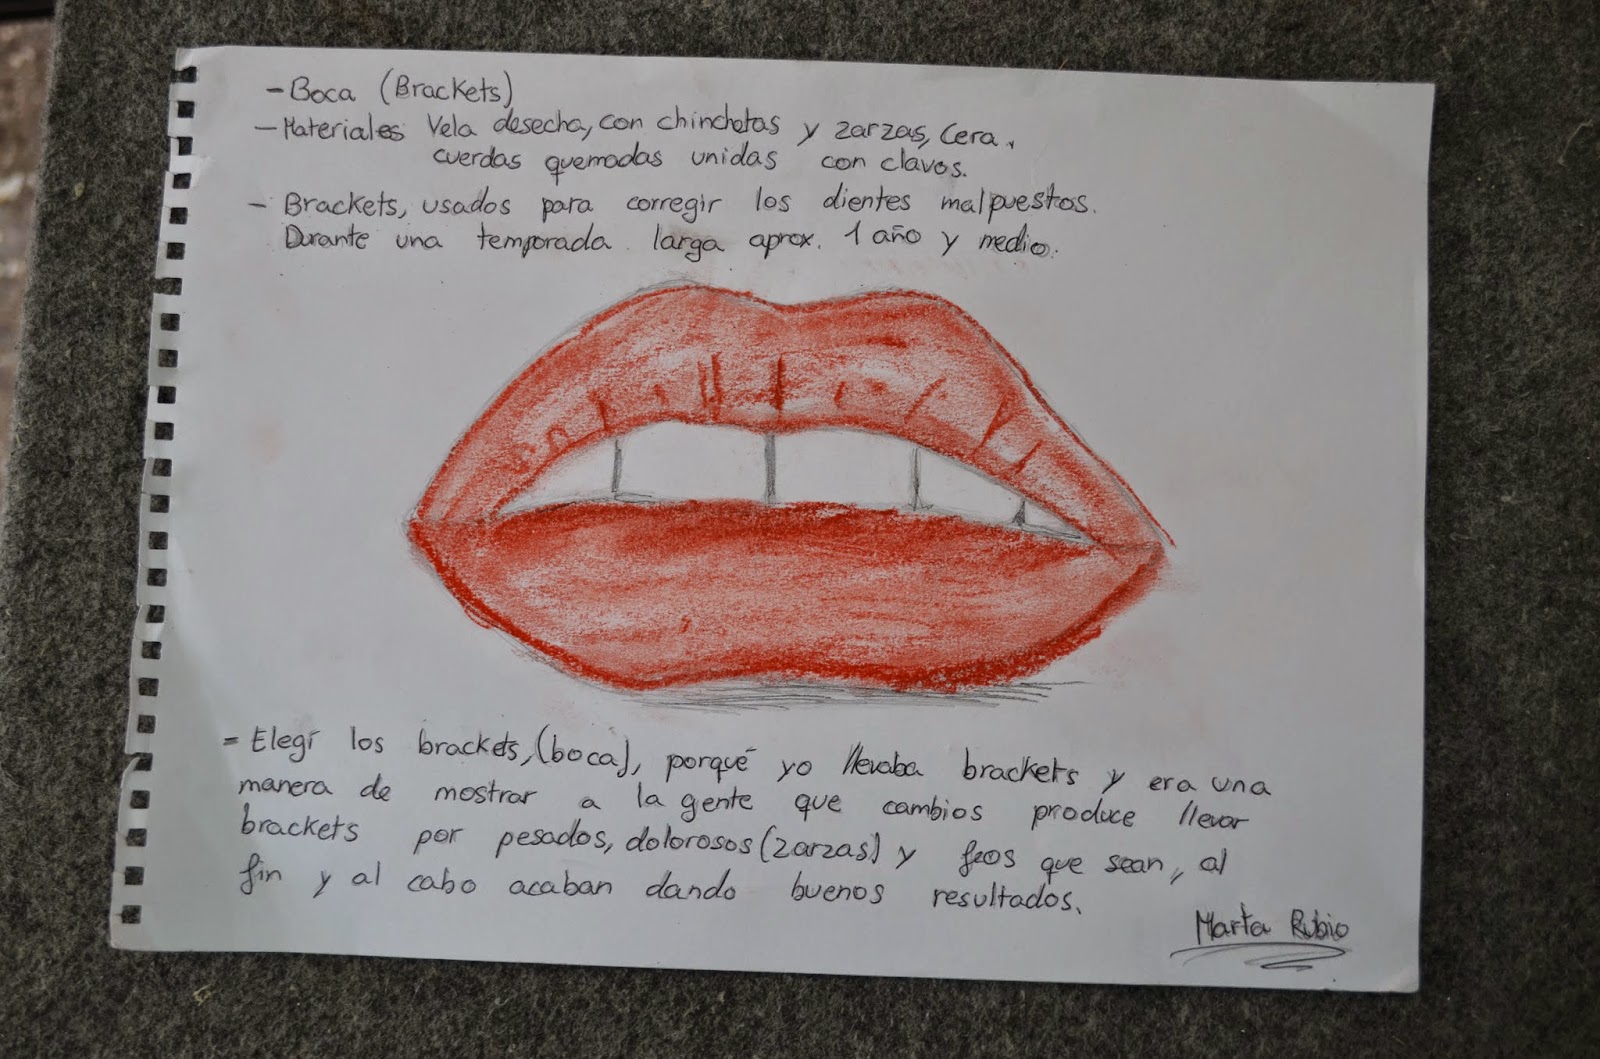 - Boca (Brackets)
- Materiales Vela desecha, con chinchetas y zarzas, Cera,
cuerdas quemadas unidas con clavos.
- Brackets, usados para corregir los dientes malpuestos.
Durante una temporada larga aprox. 1 año y medio.
- Elegí los brackets, (boca), porqué yo llevaba brackets y era una
manera de mostrar a la gente que cambios produce llevar
brackets por pesados, dolorosos (zarzas) y feos que sean, al
fin y al cabo acaban dando buenos resultados.
Marta Rubio